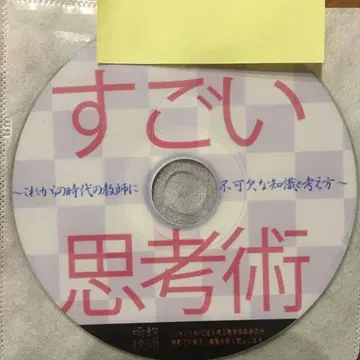 すごい
～これからの時代の教師に 不可欠な知識と考え方～
思考術